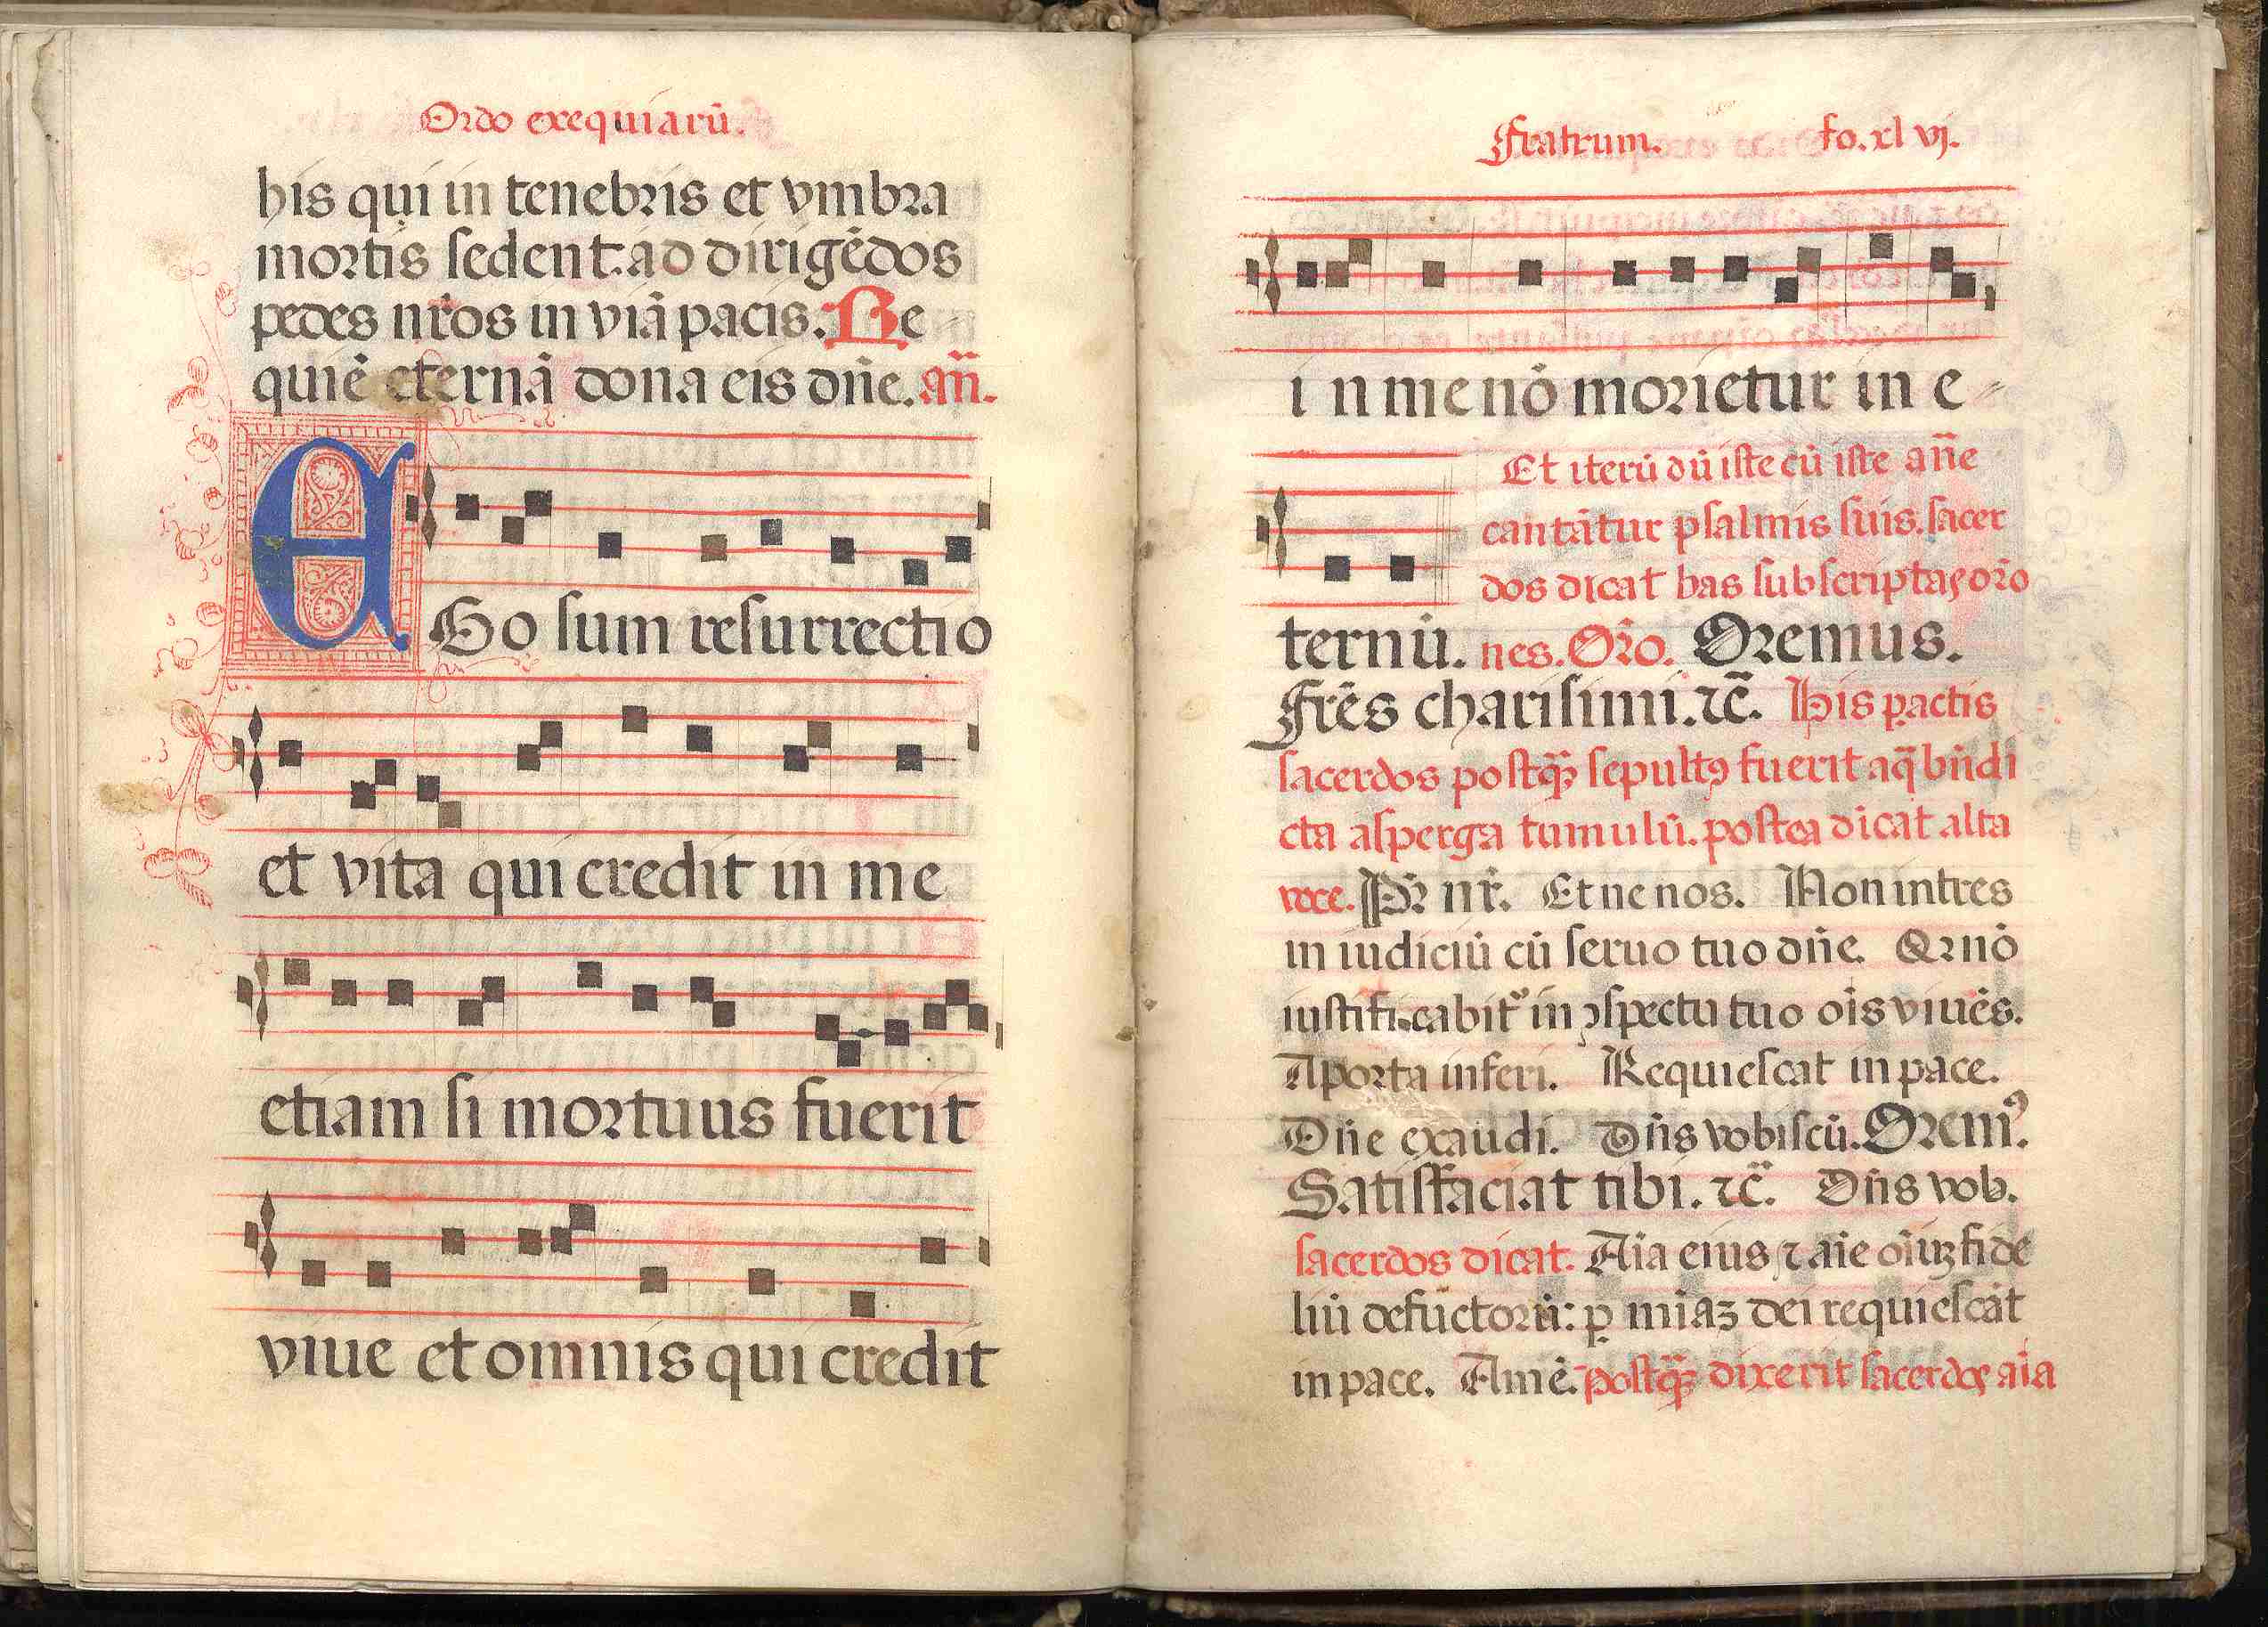 Ordo exequiarū.
his qui in tenebris et vmbra
mortis sedent: ad dirigēdos
pedes nr̄os in viā pacis. Re
quiē eternā dona eis dn̄e. an̄.
EGo sum resurrectio
et vita qui credit in me
etiam si mortuus fuerit
viue et omnis qui credit
Fratrum. fo. xl vj.
in me nō morietur in e-
Et iterū dū iste cū iste an̄e
cantātur psalmis suis. sacer
dos dicat has subscriptas or̄o
ternū. nes. Or̄o. Oremus.
Fr̄es charisimi. ⁊c̄. His ꝑactis
sacerdos postqᷓꝫ sepultꝰ fuerit aqᷓ bn̄di
cta asperga tumulū. postea dicat alta
voce. Pr̄ nr̄. Et ne nos. Non intres
in iudiciū cū seruo tuo dn̄e. Qꝛ nō
iustificabit᷑ in ꝯspectu tuo oīs viuēs.
A porta inferi. Requiescat in pace.
Dn̄e exaudi. Dn̄s vobiscū. Oremꝰ.
Satisfaciat tibi. ⁊c̄. Dn̄s vob.
sacerdos dicat. Aīa eius ⁊ aīe oīuꝫ fide
liū defūctorū: ꝑ mīaꝫ dei requiescāt
in pace. Amē. postqᷓꝫ dixerit sacerdos aīa